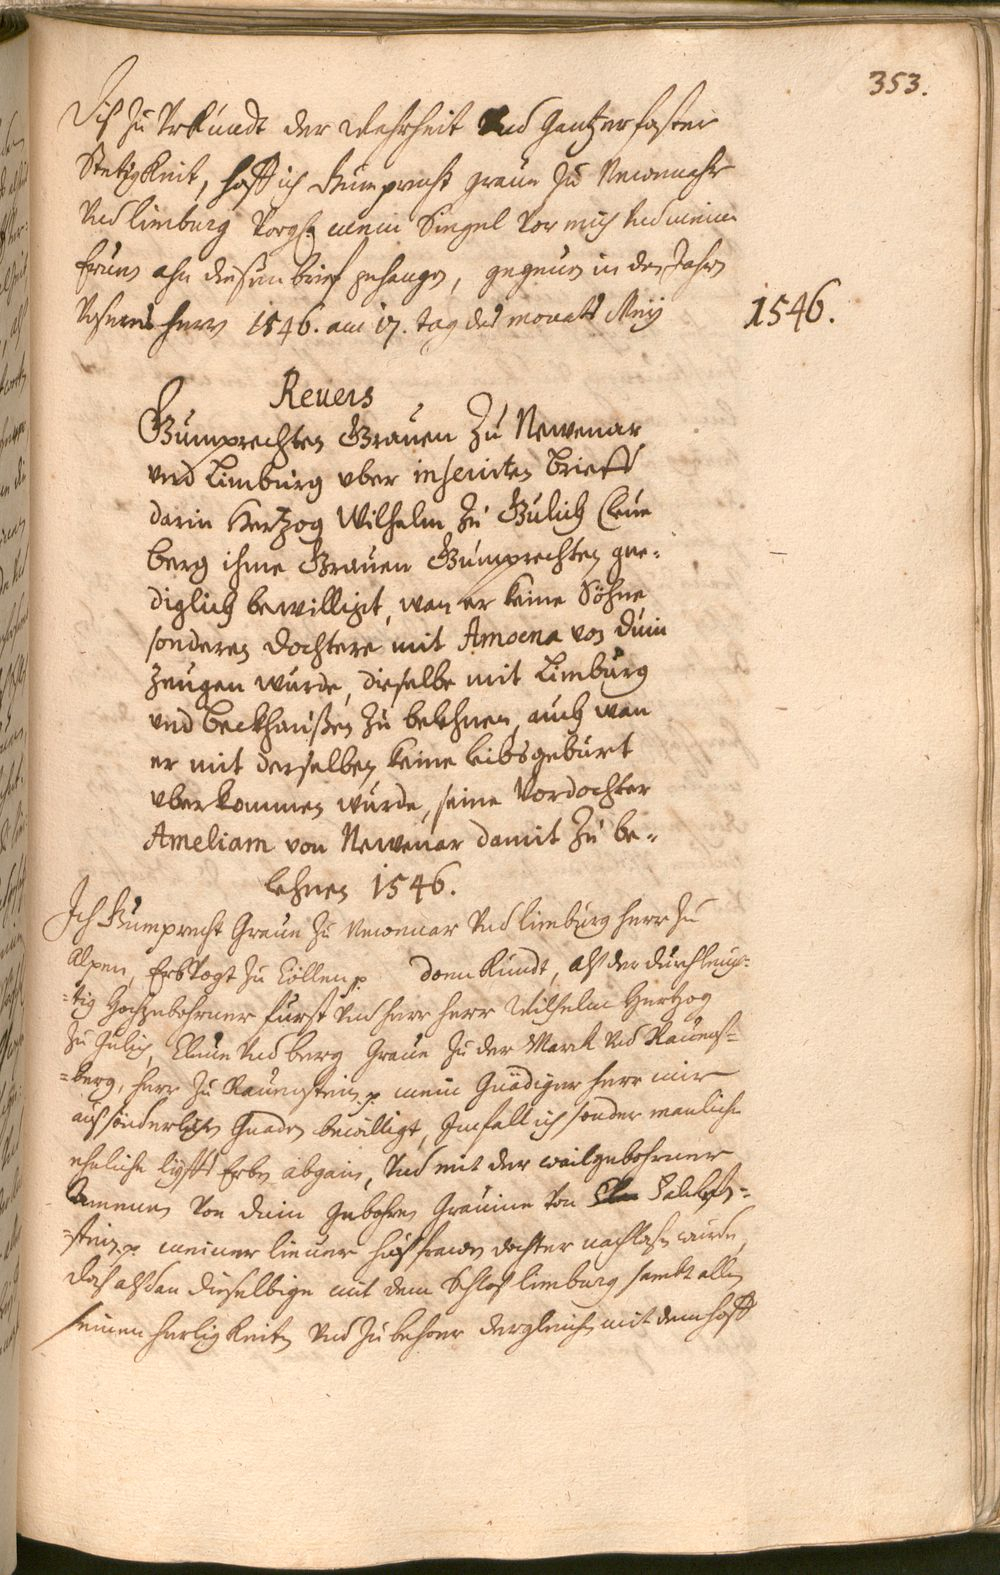 353.
Diß zu Urkundt der Wahrheit Und Gantzer faster
Stetigkeit, hab ich Gumprecht Graue zu Newenahr
Und Limburg Vorg. mein Siegel Vor mich Und meine
Eruen ahn diesen brieff gehangen, gegeuen in den Jahren
Unsers Herrn 1546. am 17. tag des monatts Meij
1546.
Reuers
Gumprechten Grauen Zu Newenar
und Limburg uber inserirten brieff
darin Hertzog Wilhelm zu Gulich Cleue
berg ihme Grauen Gumprechten gne-
diglich bewilligt, wan er keine Söhne
sonderen dochtere mit Amoena von Duin
zeugen wurde, dieselbe mit Limburg
und beckhaußen zu belehnen, auch wan
er mit derselben keine leibsgeburt
uberkommen wurde, seine Vordochter
Ameliam von Newenar damit zu be-
lehnen 1546.
Ich Gumprecht Graue zu Newenar Und Limburg Herr zu
Alpen, ErbVogt zu Cöllen p. doen Kundt, alß der durchleuch-
-tig Hochgebohrner Furst Und Herr Herr Wilhelm Hertzog
zu Gulich, Cleue Und berg Graue zu der Marck Und Rauens-
-berg, Herr zu Rauenstein p. mein Gnädiger Herr mir
auß sonderlichen Gnaden bewilligt, Im fall ich sonder manliche
eheliche lyffs Erben abgain, Und mit der wailgebohrner
Amenen Von Duin Gebohren Grauinne Von Falckhen-
-stein p. meiner lieuer Haußfrawen dochter nachlaßen wurde,
daß alßdan dieselbige mit dem Schloß Limburg sambt allen
seinen Herligkeiten Und zubehoer dergleichen mit dem Hoff